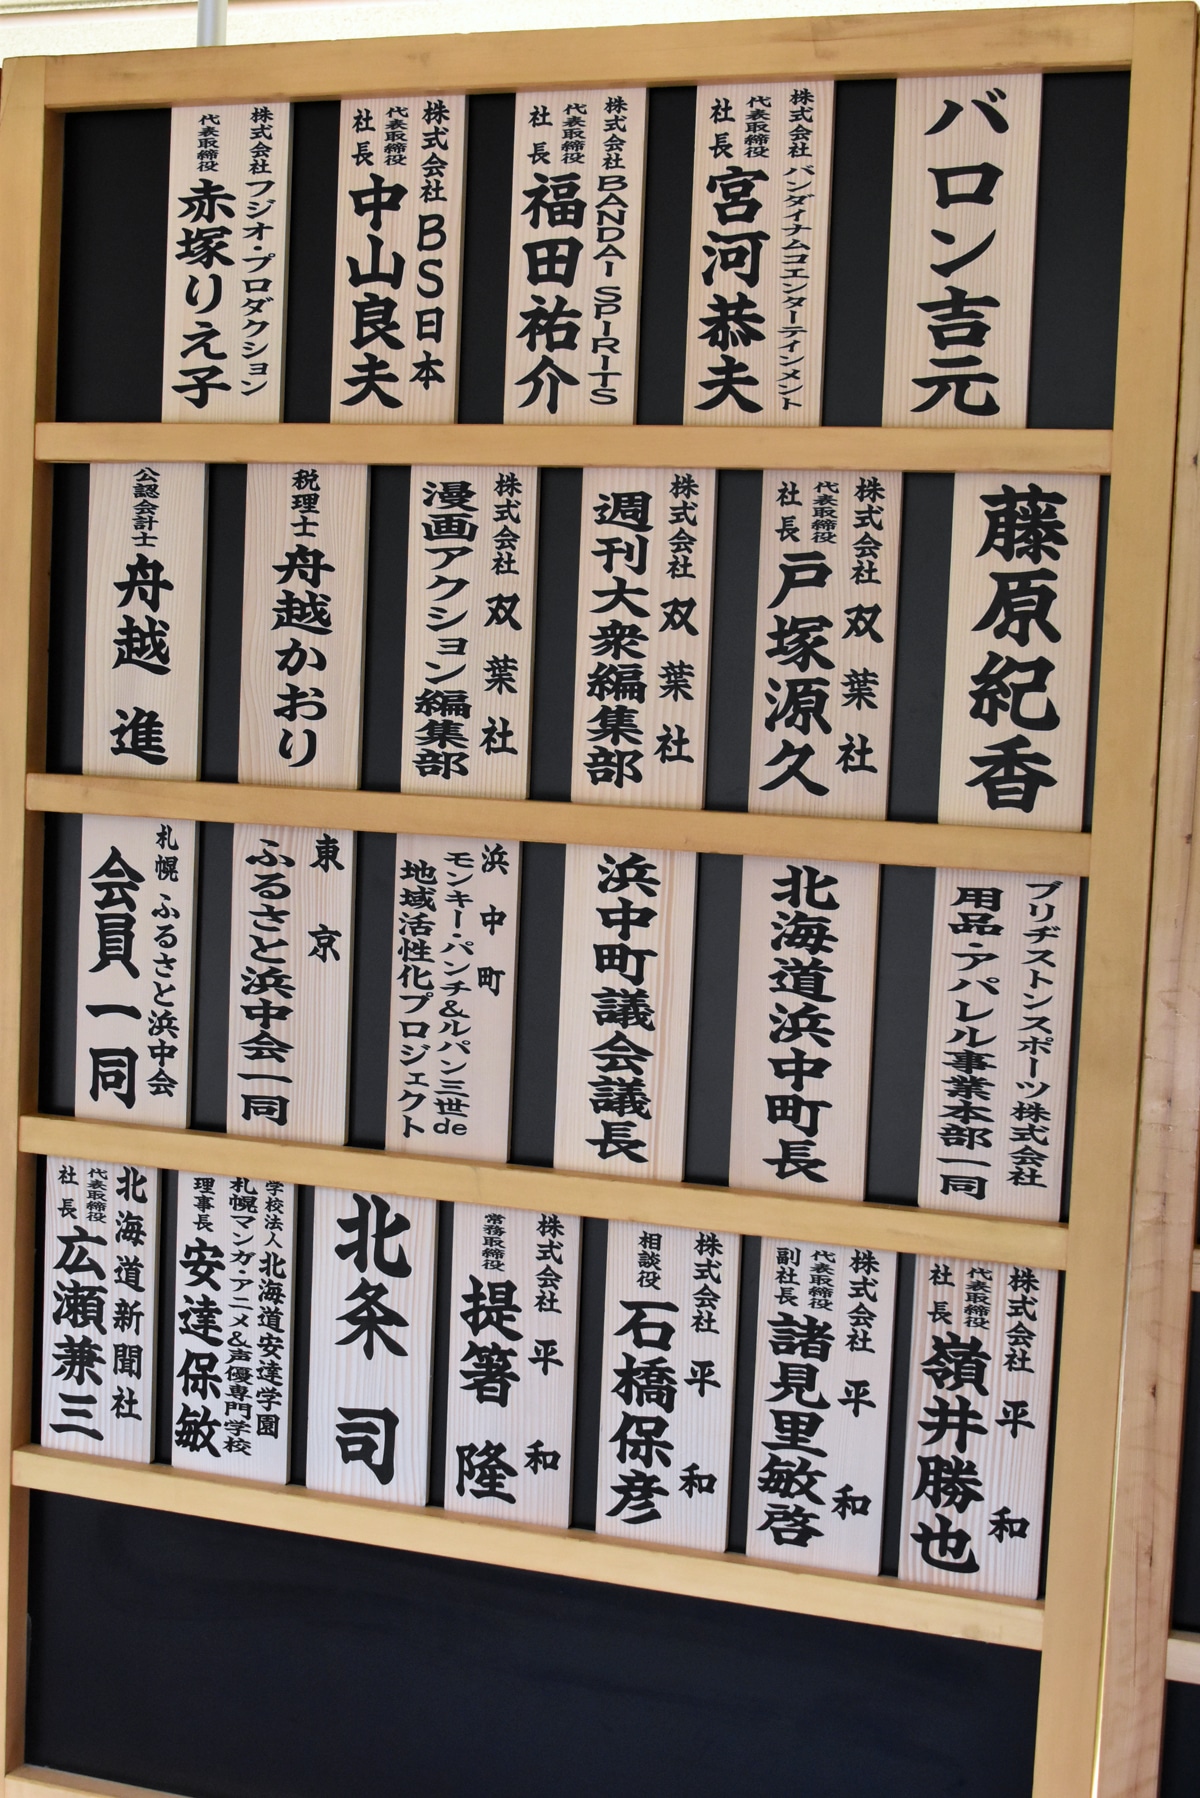 バロン吉元
株式会社バンダイナムコエンターテインメント
代表取締役
社長
宮河恭夫
株式会社BANDAI SPIRITS
代表取締役
社長
福田祐介
株式会社BS日本
代表取締役
社長
中山良夫
株式会社フジオ・プロダクション
代表取締役
赤塚りえ子
藤原紀香
株式会社双葉社
代表取締役
社長
戸塚源久
株式会社双葉社
週刊大衆編集部
株式会社双葉社
漫画アクション編集部
税理士
舟越かおり
公認会計士
舟越 進
ブリヂストンスポーツ株式会社
用品・アパレル事業本部一同
北海道浜中町長
浜中町議会議長
浜中町
モンキー・パンチ&ルパン三世de
地域活性化プロジェクト
東京
ふるさと浜中会一同
札幌 ふるさと浜中会
会員一同
株式会社 平和
代表取締役
社長
嶺井勝也
株式会社 平和
代表取締役
副社長
諸見里敏啓
株式会社 平和
相談役
石橋保彦
株式会社 平和
常務取締役
提箸 隆
北条 司
学校法人 北海道安達学園
札幌マンガ・アニメ&声優専門学校
理事長
安達保敏
北海道新聞社
代表取締役
社長
広瀬兼三